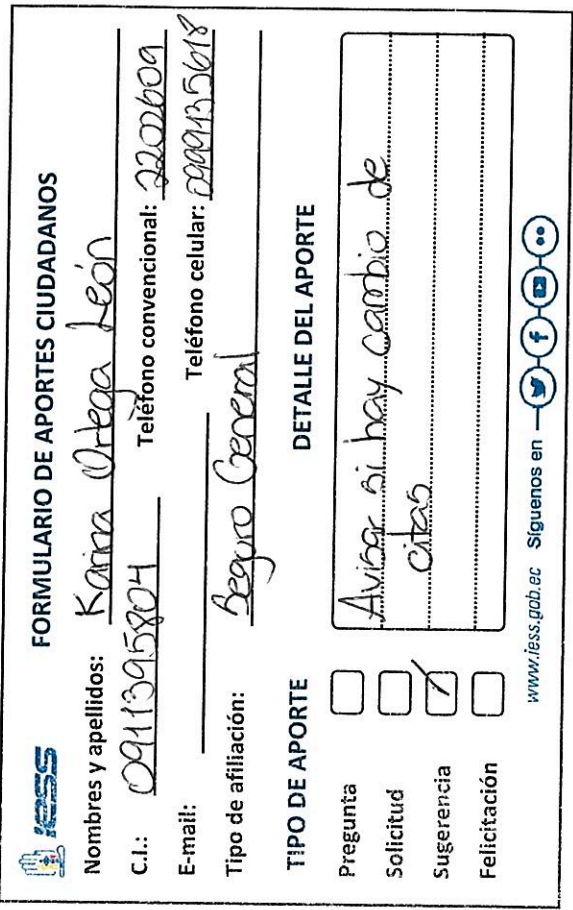 iess
FORMULARIO DE APORTES CIUDADANOS
Nombres y apellidos: Karina Ortega León
C.I.: 0911395804 Teléfono convencional: 2202609
E-mail: Teléfono celular: 0999135618
Tipo de afiliación: Seguro General
TIPO DE APORTE
Pregunta
Solicitud
Sugerencia
Felicitación
DETALLE DEL APORTE
Avisar si hay cambio de
citas
www.iess.gob.ec Síguenos en